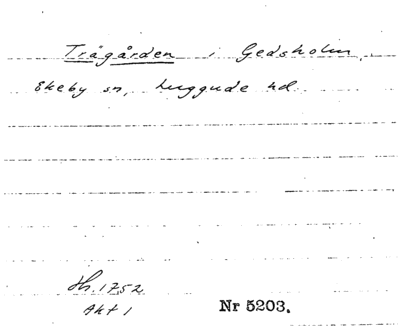 Trågården i Gedsholm,
Ekeby sn, Luggude hd
Hh. 1752
Akt 1
Nr 5203.